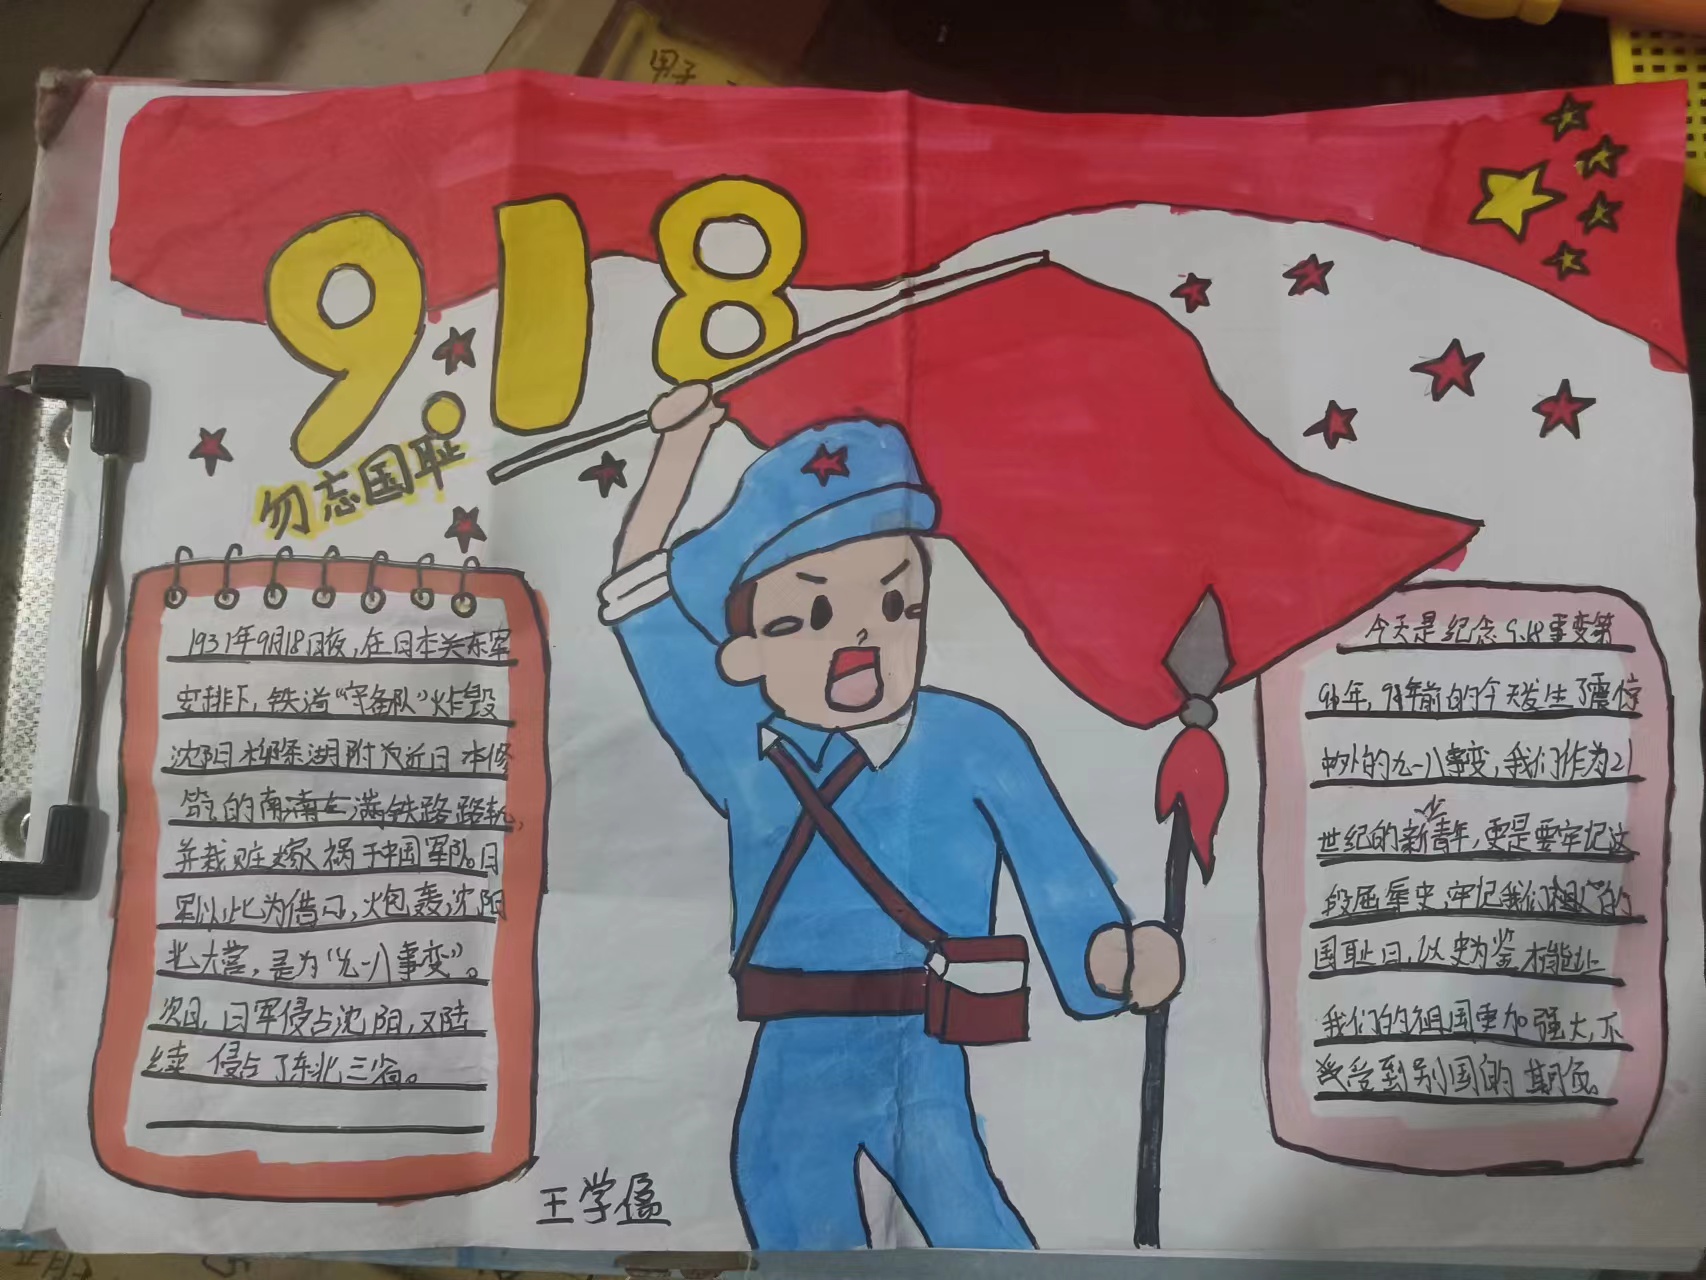 男子
9.18
勿忘国耻
1931年9月18日夜,在日本关东军
安排下,铁道“守备队”炸毁
沈阳柳条湖附近日本修
筑的南满铁路路轨,
并栽赃嫁祸于中国军队。日
军以此为借口,炮轰沈阳
北大营,是为“九一八事变”。
次日,日军侵占沈阳,又陆
续 侵占了东北三省。
今天是纪念9.18事变第
年,年前的今天发生了震惊
中外的九一八事变,我们作为21
世纪的新青少年,更是要牢记这
段屈辱史,牢记我们的
国耻日,以史为鉴,才能让
我们的祖国更加强大,不
受到别国的期负。
王学
正月